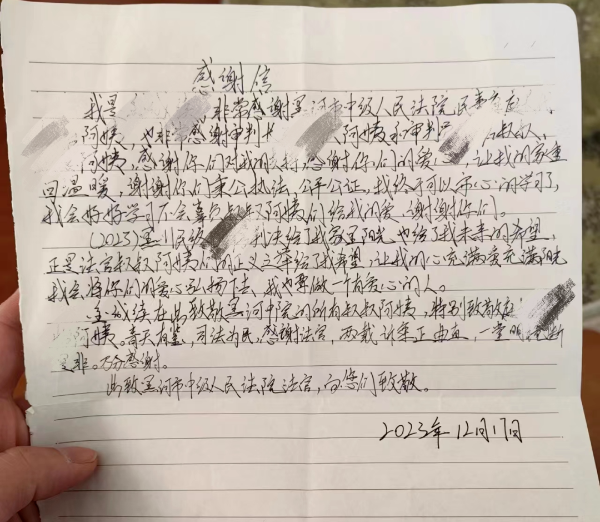 感谢信
我是 非常感谢黑河市中级人民法院民事
阿姨，也非 感谢审判长 阿姨和审判 叔叔、
阿姨，感谢你们对我的支持，感谢你们的爱心，让我的家重
回温暖，谢谢你们秉公执法，公平公证，我终于可以安心的学习了，
我会好好学习不会辜负叔叔阿姨们给我的爱、谢谢你们。
(2023)黑11民终 判决给了我家里阳光也给了我未来的希望，
正是法官叔叔阿姨们的正义之举给了我希望，让我的心充满爱充满阳光
我会将你们的爱心弘扬下去、我也要做一个有爱心的人。
在此致敬黑河中院的所有叔叔阿姨，特别致敬
阿姨。青天有鉴，司法为民，感谢法官，两载诉案正曲直，一堂 断
是非。万分感谢。
此致黑河市中级人民法院法官，向您们致敬。
2023年12月17日